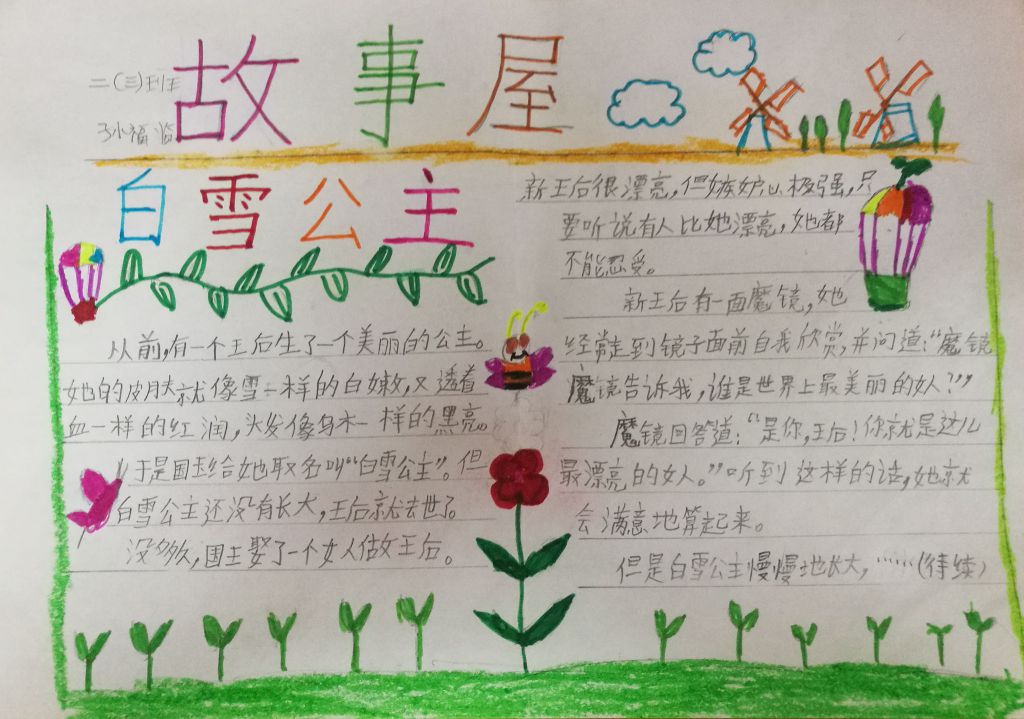 故事屋
二(三)班王
子小福
白雪公主
从前,有一个王后生了一个美丽的公主。
她的皮肤就像雪一样的白嫩,又透着
血一样的红润,头发像乌木一样的黑亮。
于是国王给她取名叫“白雪公主”。但
白雪公主还没有长大,王后就去世了。
没多久,国王娶了一个女人做王后。
新王后很漂亮,但嫉妒心极强,只
要听说有人比她漂亮,她都
不能忍受。
新王后有一面魔镜,她
经常走到镜子面前自我欣赏,并问道:“魔镜
魔镜告诉我,谁是世界上最美丽的女人?”
魔镜回答道:“是你,王后!你就是这儿
最漂亮的女人。”听到这样的话,她就
会满意地算起来。
但是白雪公主慢慢地长大,……(待续)